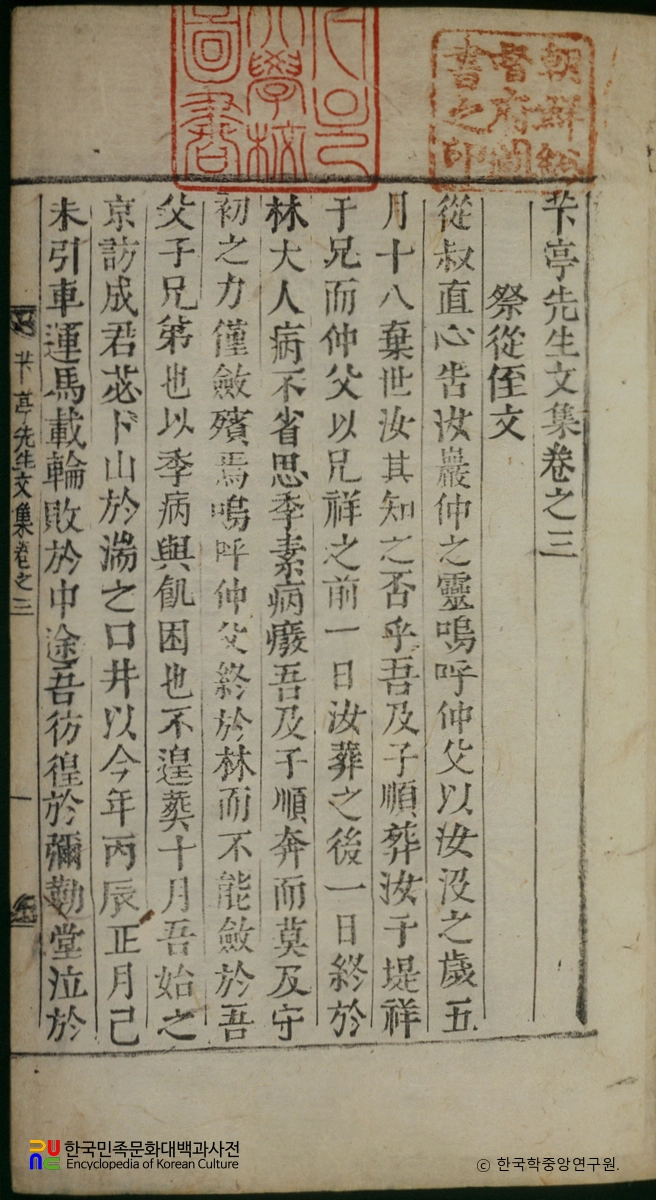 朝鮮總
督府圖
書之印
學校
圖書
芐亭先生文集卷之三
祭從侄文
從叔直心告汝巖仲之靈嗚呼仲父以汝沒之歲五
月十八棄世汝其知之否乎吾及子順葬汝于堤祥
于兄而仲父以兄祥之前一日汝葬之後一日終於
林大人病不省思季素病癈吾及子順奔而莫及守
初之力僅斂殯焉嗚呼仲父終於林而不能斂於吾
父子兄弟也以季病與飢困也不遑葬十月吾始之
京訪成君苾卜山於湍之口井以今年丙辰正月己
未引車運馬載輪敗於中途吾彷徨於彌勒堂泣於
芐亭先生文集卷之三
一
한국민족문화대백과사전
Encyclopedia of Korean Culture
© 한국학중앙연구원.